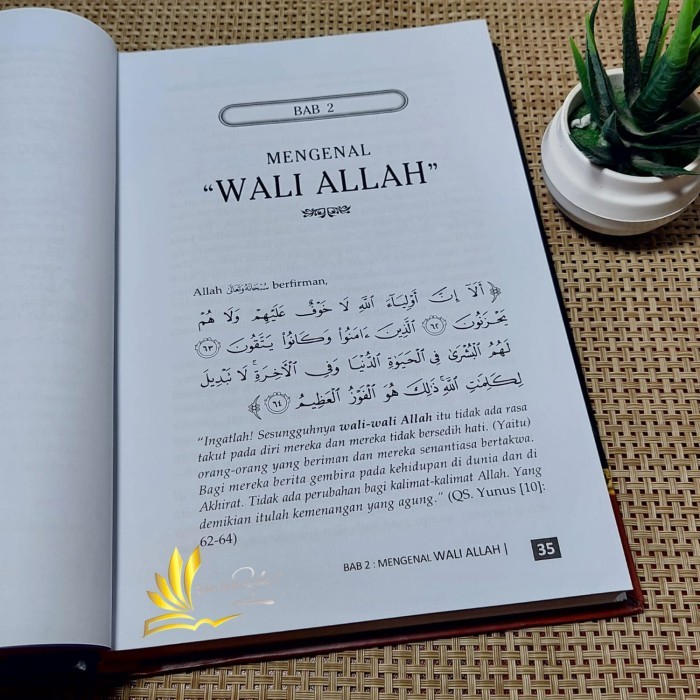 BAB 2
MENGENAL
“WALI ALLAH”
Allah سُبْحَانَهُ وَتَعَالَى berfirman,
﴿ أَلَآ إِنَّ أَوْلِيَآءَ ٱللَّهِ لَا خَوْفٌ عَلَيْهِمْ وَلَا هُمْ
يَحْزَنُونَ ﴿٦٢﴾ ٱلَّذِينَ ءَامَنُوا۟ وَكَانُوا۟ يَتَّقُونَ ﴿٦٣﴾
لَهُمُ ٱلْبُشْرَىٰ فِى ٱلْحَيَوٰةِ ٱلدُّنْيَا وَفِى ٱلْـَٔاخِرَةِ ۚ لَا تَبْدِيلَ
لِكَلِمَـٰتِ ٱللَّهِ ۚ ذَٰلِكَ هُوَ ٱلْفَوْزُ ٱلْعَظِيمُ ﴿٦٤﴾ ﴾
“Ingatlah! Sesungguhnya wali-wali Allah itu tidak ada rasa
takut pada diri mereka dan mereka tidak bersedih hati. (Yaitu)
orang-orang yang beriman dan mereka senantiasa bertakwa.
Bagi mereka berita gembira pada kehidupan di dunia dan di
Akhirat. Tidak ada perubahan bagi kalimat-kalimat Allah. Yang
demikian itulah kemenangan yang agung.” (QS. Yunus [10]:
62-64)
BAB 2 : MENGENAL WALI ALLAH | 35